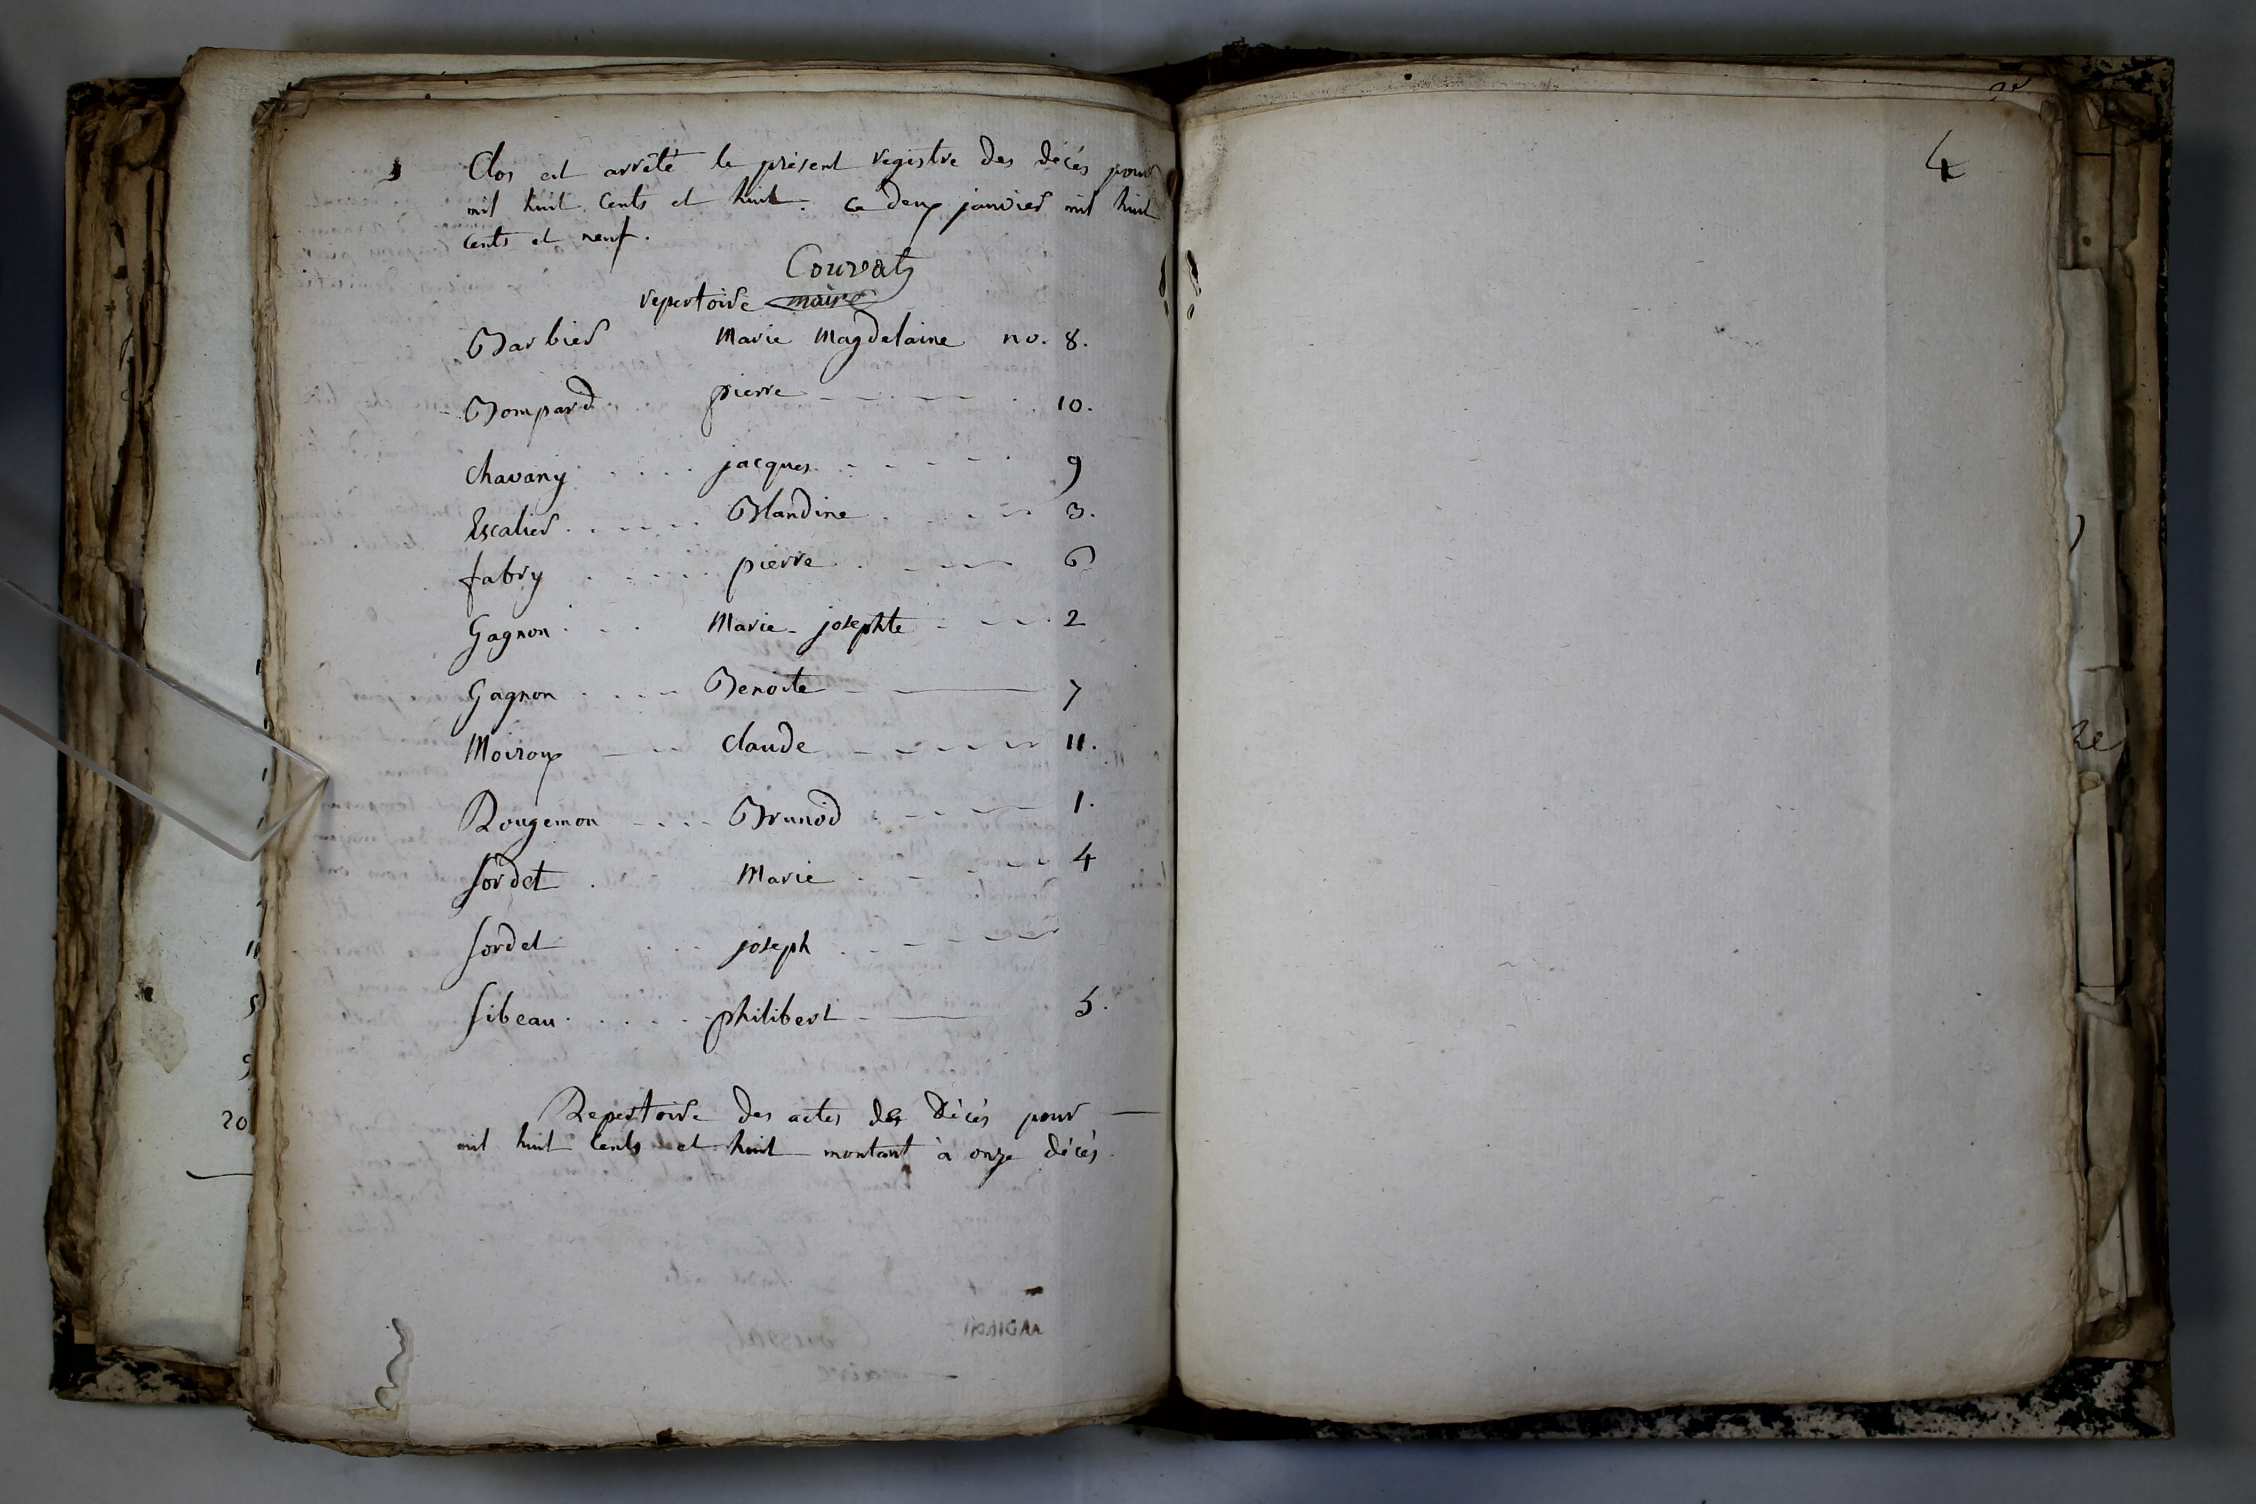 Clos et arrêté le présent registre des décès pour
mil huit cents et huit. ce deux janvier mil huit
cents et neuf.
Couvat
repertoire maire
Barbier Marie Magdelaine no. 8.
Bompard pierre 10.
Chavany jacques 9
Escalier Blandine 3.
fabry pierre 6
Gagnon Marie-josephte 2
Gagnon Benoite 7
Moiroux Claude 11.
Rougemon Brunod 1.
Sordet Marie 4
Sordet joseph
Sibeau philibert 5.
Repertoire des actes des décès pour
mil huit cents et huit montant à onze décès.
4
11
5
20